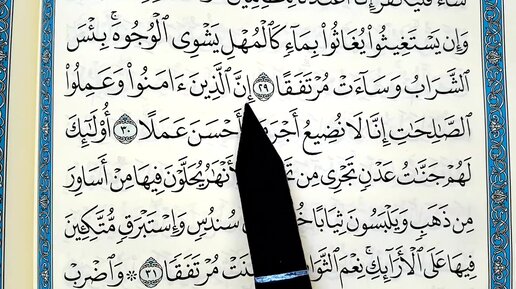 وَإِن يَسْتَغِيثُوا۟ يُغَاثُوا۟ بِمَآءٍ كَٱلْمُهْلِ يَشْوِى ٱلْوُجُوهَ ۚ بِئْسَ
ٱلشَّرَابُ وَسَآءَتْ مُرْتَفَقًا ٢٩ إِنَّ ٱلَّذِينَ ءَامَنُوا۟ وَعَمِلُوا۟
ٱلصَّـٰلِحَـٰتِ إِنَّا لَا نُضِيعُ أَجْرَ أَحْسَنَ عَمَلًا ٣٠ أُو۟لَـٰٓئِكَ
لَهُمْ جَنَّـٰتُ عَدْنٍ تَجْرِى مِن ٱلْأَنْهَـٰرُ يُحَلَّوْنَ فِيهَا مِنْ أَسَاوِرَ
مِن ذَهَبٍ وَيَلْبَسُونَ ثِيَابًا سُندُسٍ وَإِسْتَبْرَقٍ مُّتَّكِـِٔينَ
فِيهَا عَلَى ٱلْأَرَآئِكِ ۚ نِعْمَ ٱلثَّوَابُ مُرْتَفَقًا ٣١ ۞ وَٱضْرِبْ